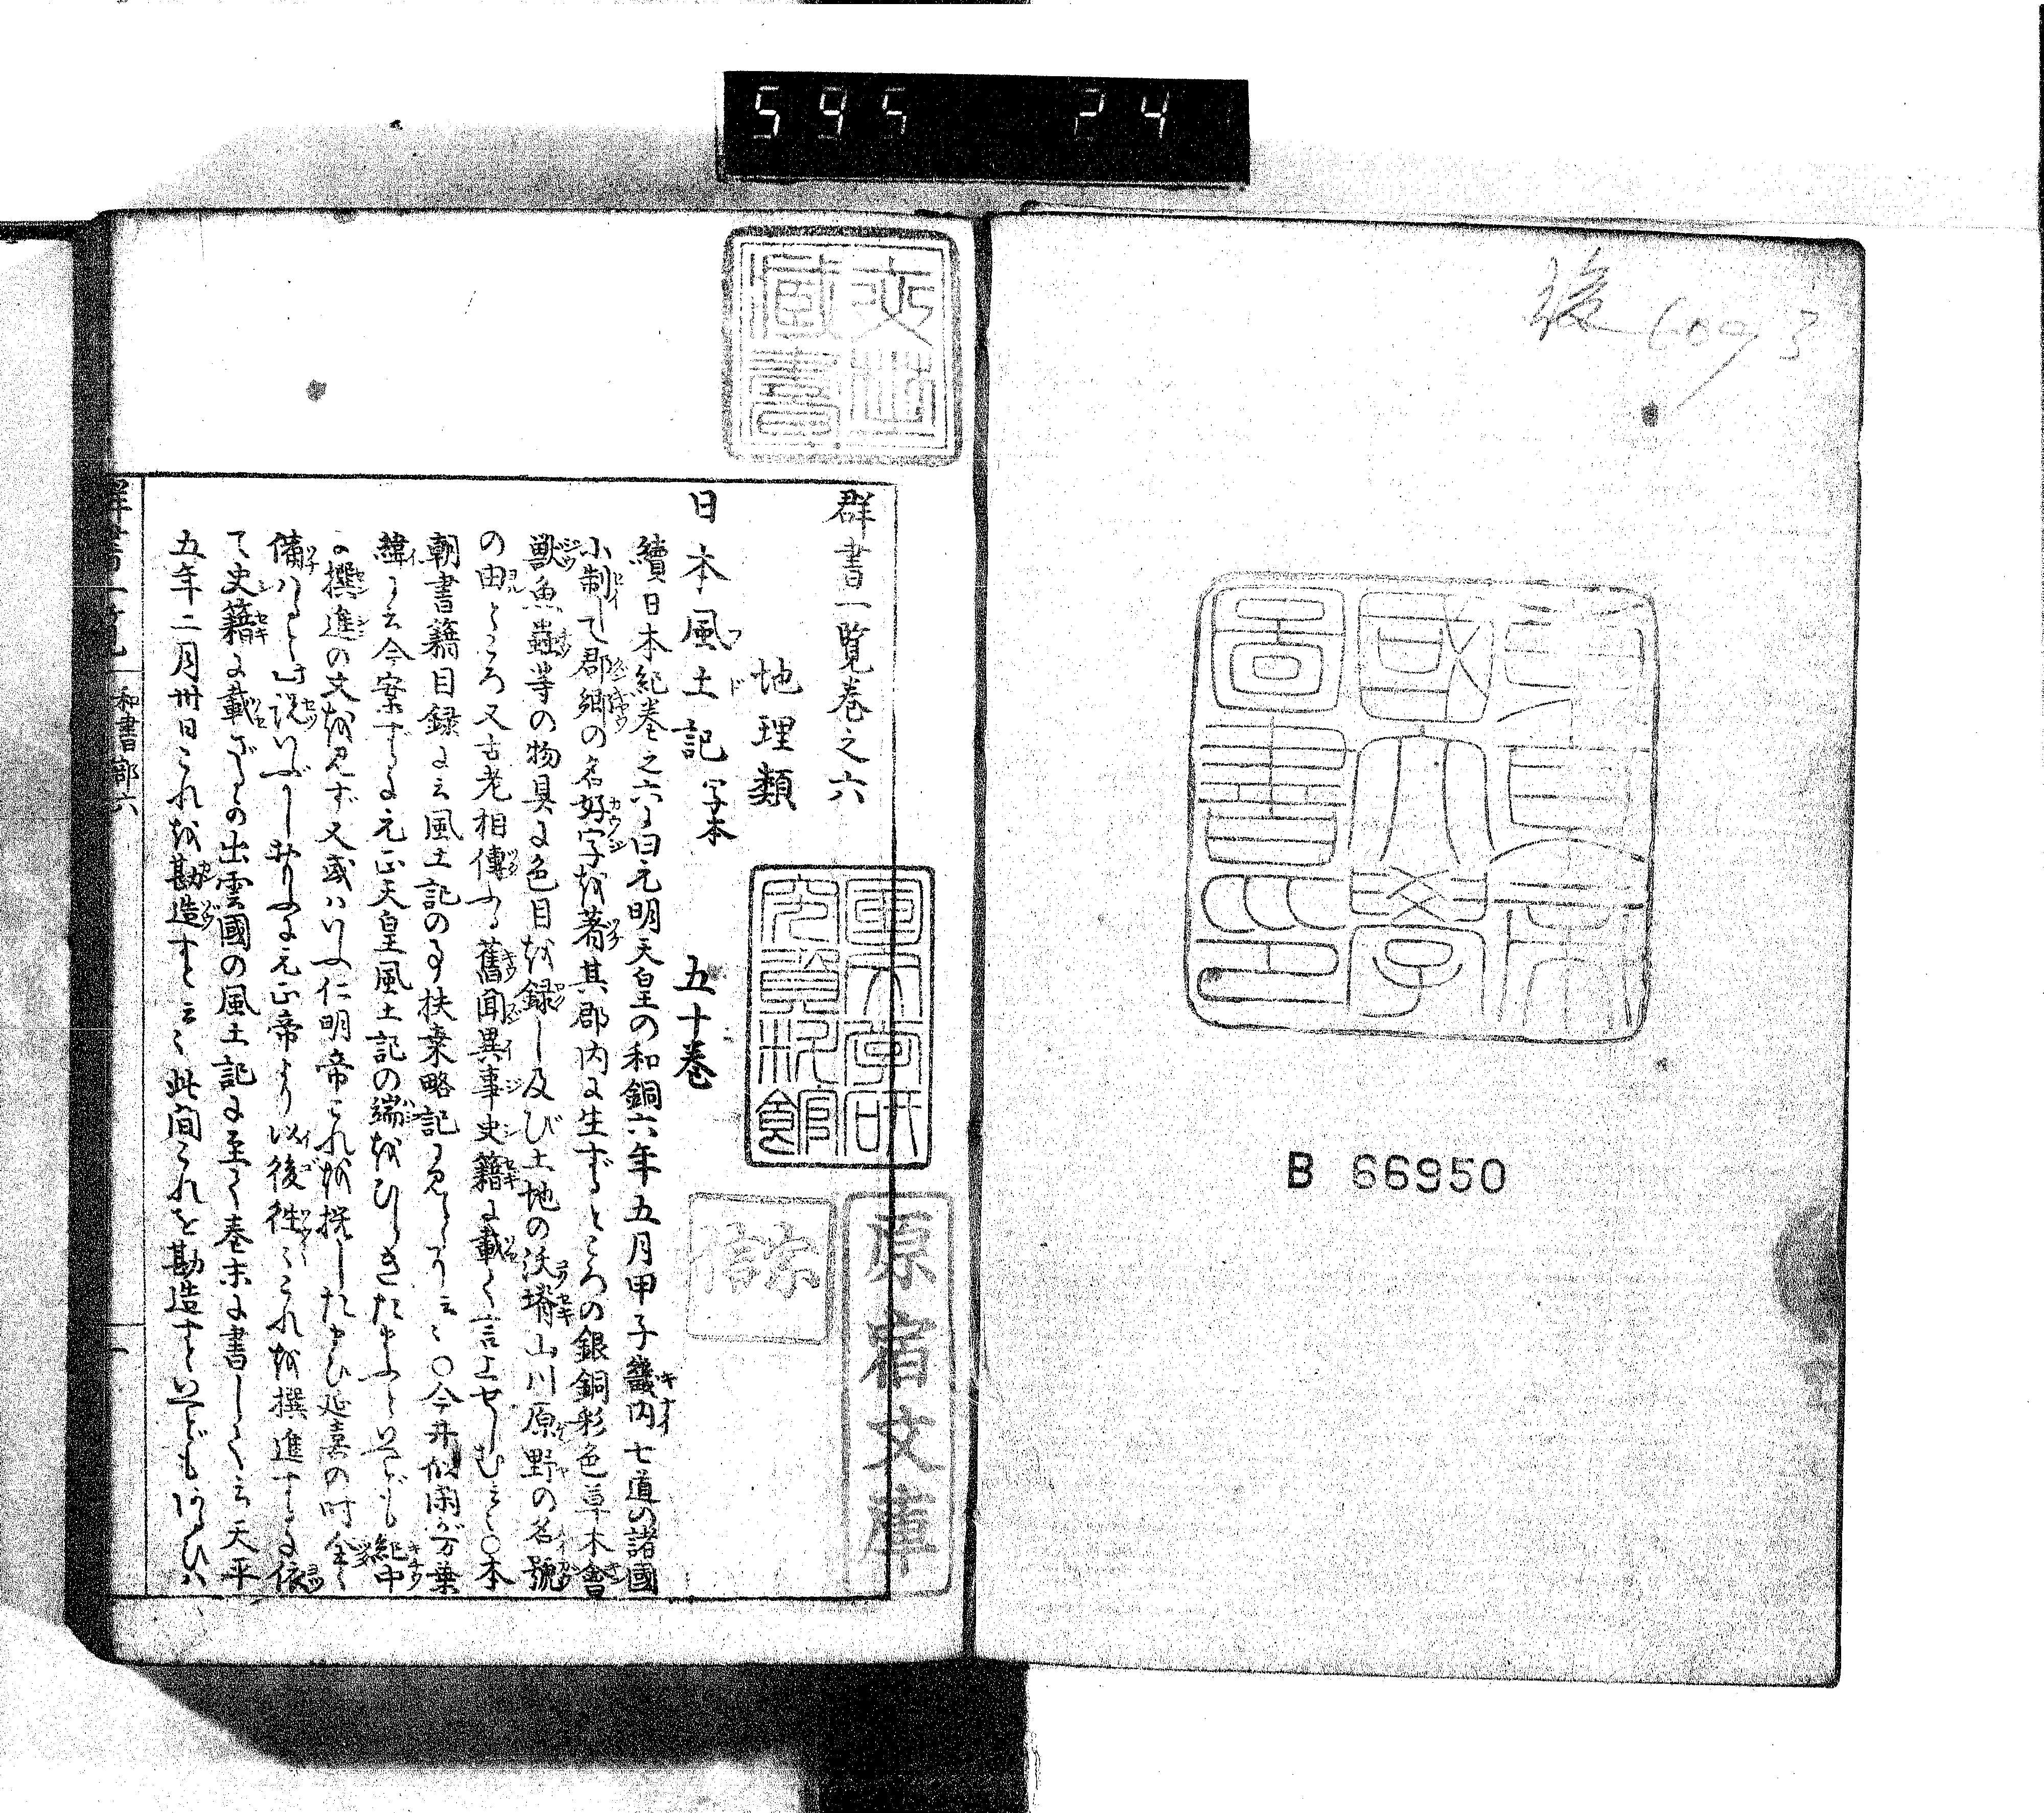 595 24
後 6093
東京帝
國大學
圖書之印
B 66950
藏書
群書一覧巻之六
地理類
日本風土記 写本 五十巻
續日本紀巻之六に曰元明天皇の和銅六年五月甲子畿内七道の諸國
に制して郡郷の名好字を著其郡内に生ずるところの銀銅彩色草木禽
獸魚蟲等の物具に色目を録し及び土地の沃塉山川原野の名號
の由ところ又古老相傳ふる舊聞異事史籍に載て言上せしむと云々〇本
朝書籍目録に云風土記の事扶桑略記に見えたりと云々〇今井似閑が万葉
緯に云今案ずるに元正天皇風土記の端をひらきたまふといへども紀中
に撰進の文を見ず又或はいふ仁明帝これを撰したまひ延喜の時全く
備はると此説いぶかし
元正帝より以後往々これを撰進するに依
て史籍に載ざるの出雲國の風土記に至て巻末に書して云天平
五年二月卅日これを勘造すと云々此間これを勘造すといへども
原宿文庫
群書一覧 和書部六 一